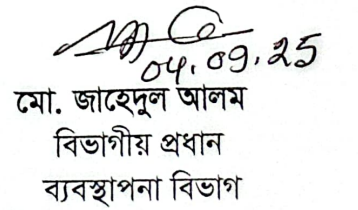 04.09.25
মো. জাহেদুল আলম
বিভাগীয় প্রধান
ব্যবস্থাপনা বিভাগ